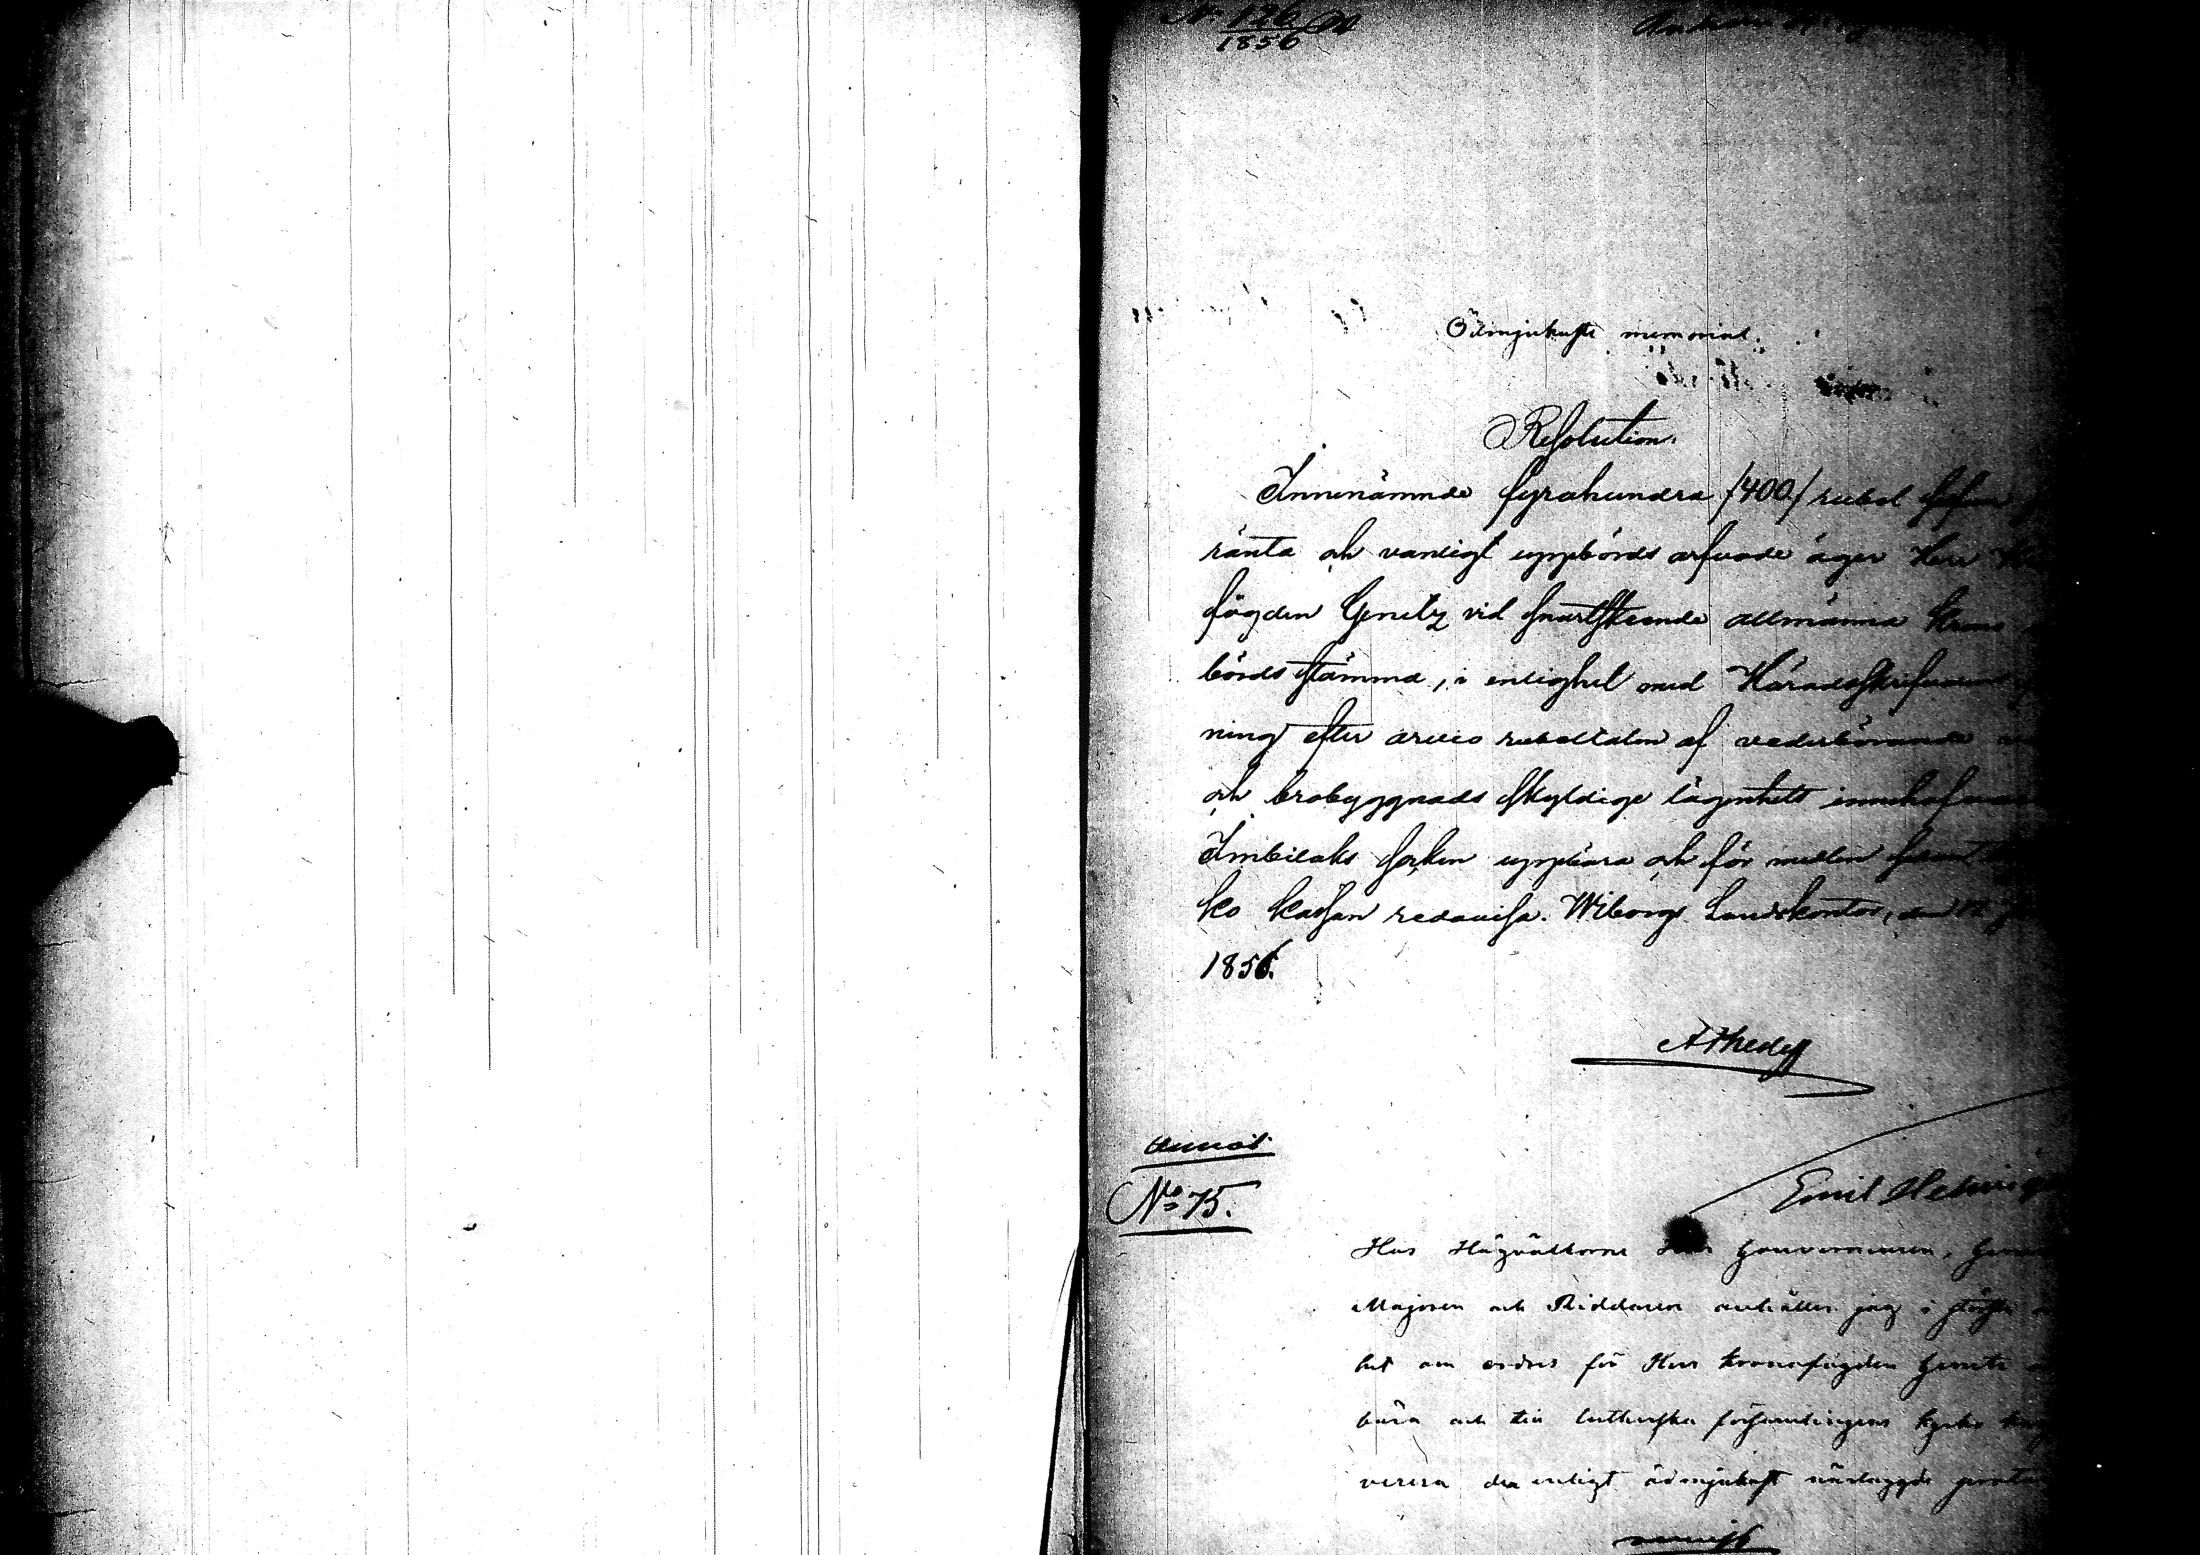 No 126
1856
Ödmjukaste memorial.
Resolution.
Innenämnde fyrahundra /400/ rubel
ränta och vanligt uppbörds arfvode äger Herr
fogden Genetz vid snartskeende allmänna Krono
börds stämma, i enlighet med Häradsskrifvarens
ning efter arvio rubeltalen af vederbörande
och brobyggnads skyldige lägenhets innehafvare
Imbilaks socken uppbära och för medlen sedan
ko kassan redovisa. Wiborgs Landskontor, den 12
1856.
AThesleff
Anneot
No 75.
Emil
Hos Högvälborne Herr Gouverneuren, General
Majoren och Riddaren anhåller jag i största
het om ordres för Herr kronofogden Genetz
bära och till lutherska församlingens kyrko
verera den enligt ödmjukast närlaggde